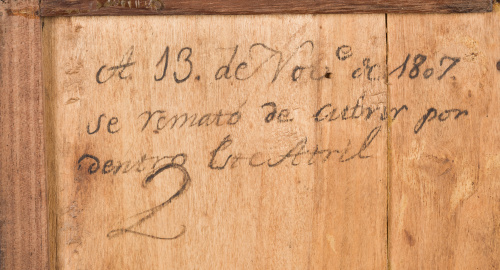 A 13. de Nov.e de 1807.
se remató de cubrir por
dentro Este Atril
2